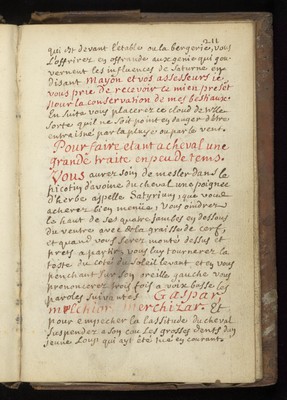 211
qui est devant l'etable ou la bergerie, vous
l'offrirez en offrande aux genie qui gou-
vernent les influences de Saturne en
disant Mayon et vos assesseurs ie
vous prie de recevoir ce mien preset
pour la conservation de mes bestiaux.
En suite vous placerez ce cloud de telle
sorte qu'il ne soit point en danger d'être
entraisné par la pluye ou par le vent.
Pour faire étant a cheval une
grande traite en peu de tems.
Vous aurez soin de mesler dans le
picotin d'avoine du cheval une poignée
d'herbe appellé Satyrium, que vous
acherez bien menüe, Vous oindrez
le haut de ses quatre jambes en dessous
du ventre avec de la graisse de cerf,
et quand vous serez monté dessus et
prest a partir, vous luy tournerez la
teste du coté du Soleil levant, et en vous
penchant sur son oreille gauche vous
prononcerez trois fois a voix basse les
paroles suivantes Gaspar,
Melchior Merchizar. Et
pour empecher la lassitude du cheval
suspendez a son cou les grosses dents d'un
jeune Loup qui ayt été tué en courant.